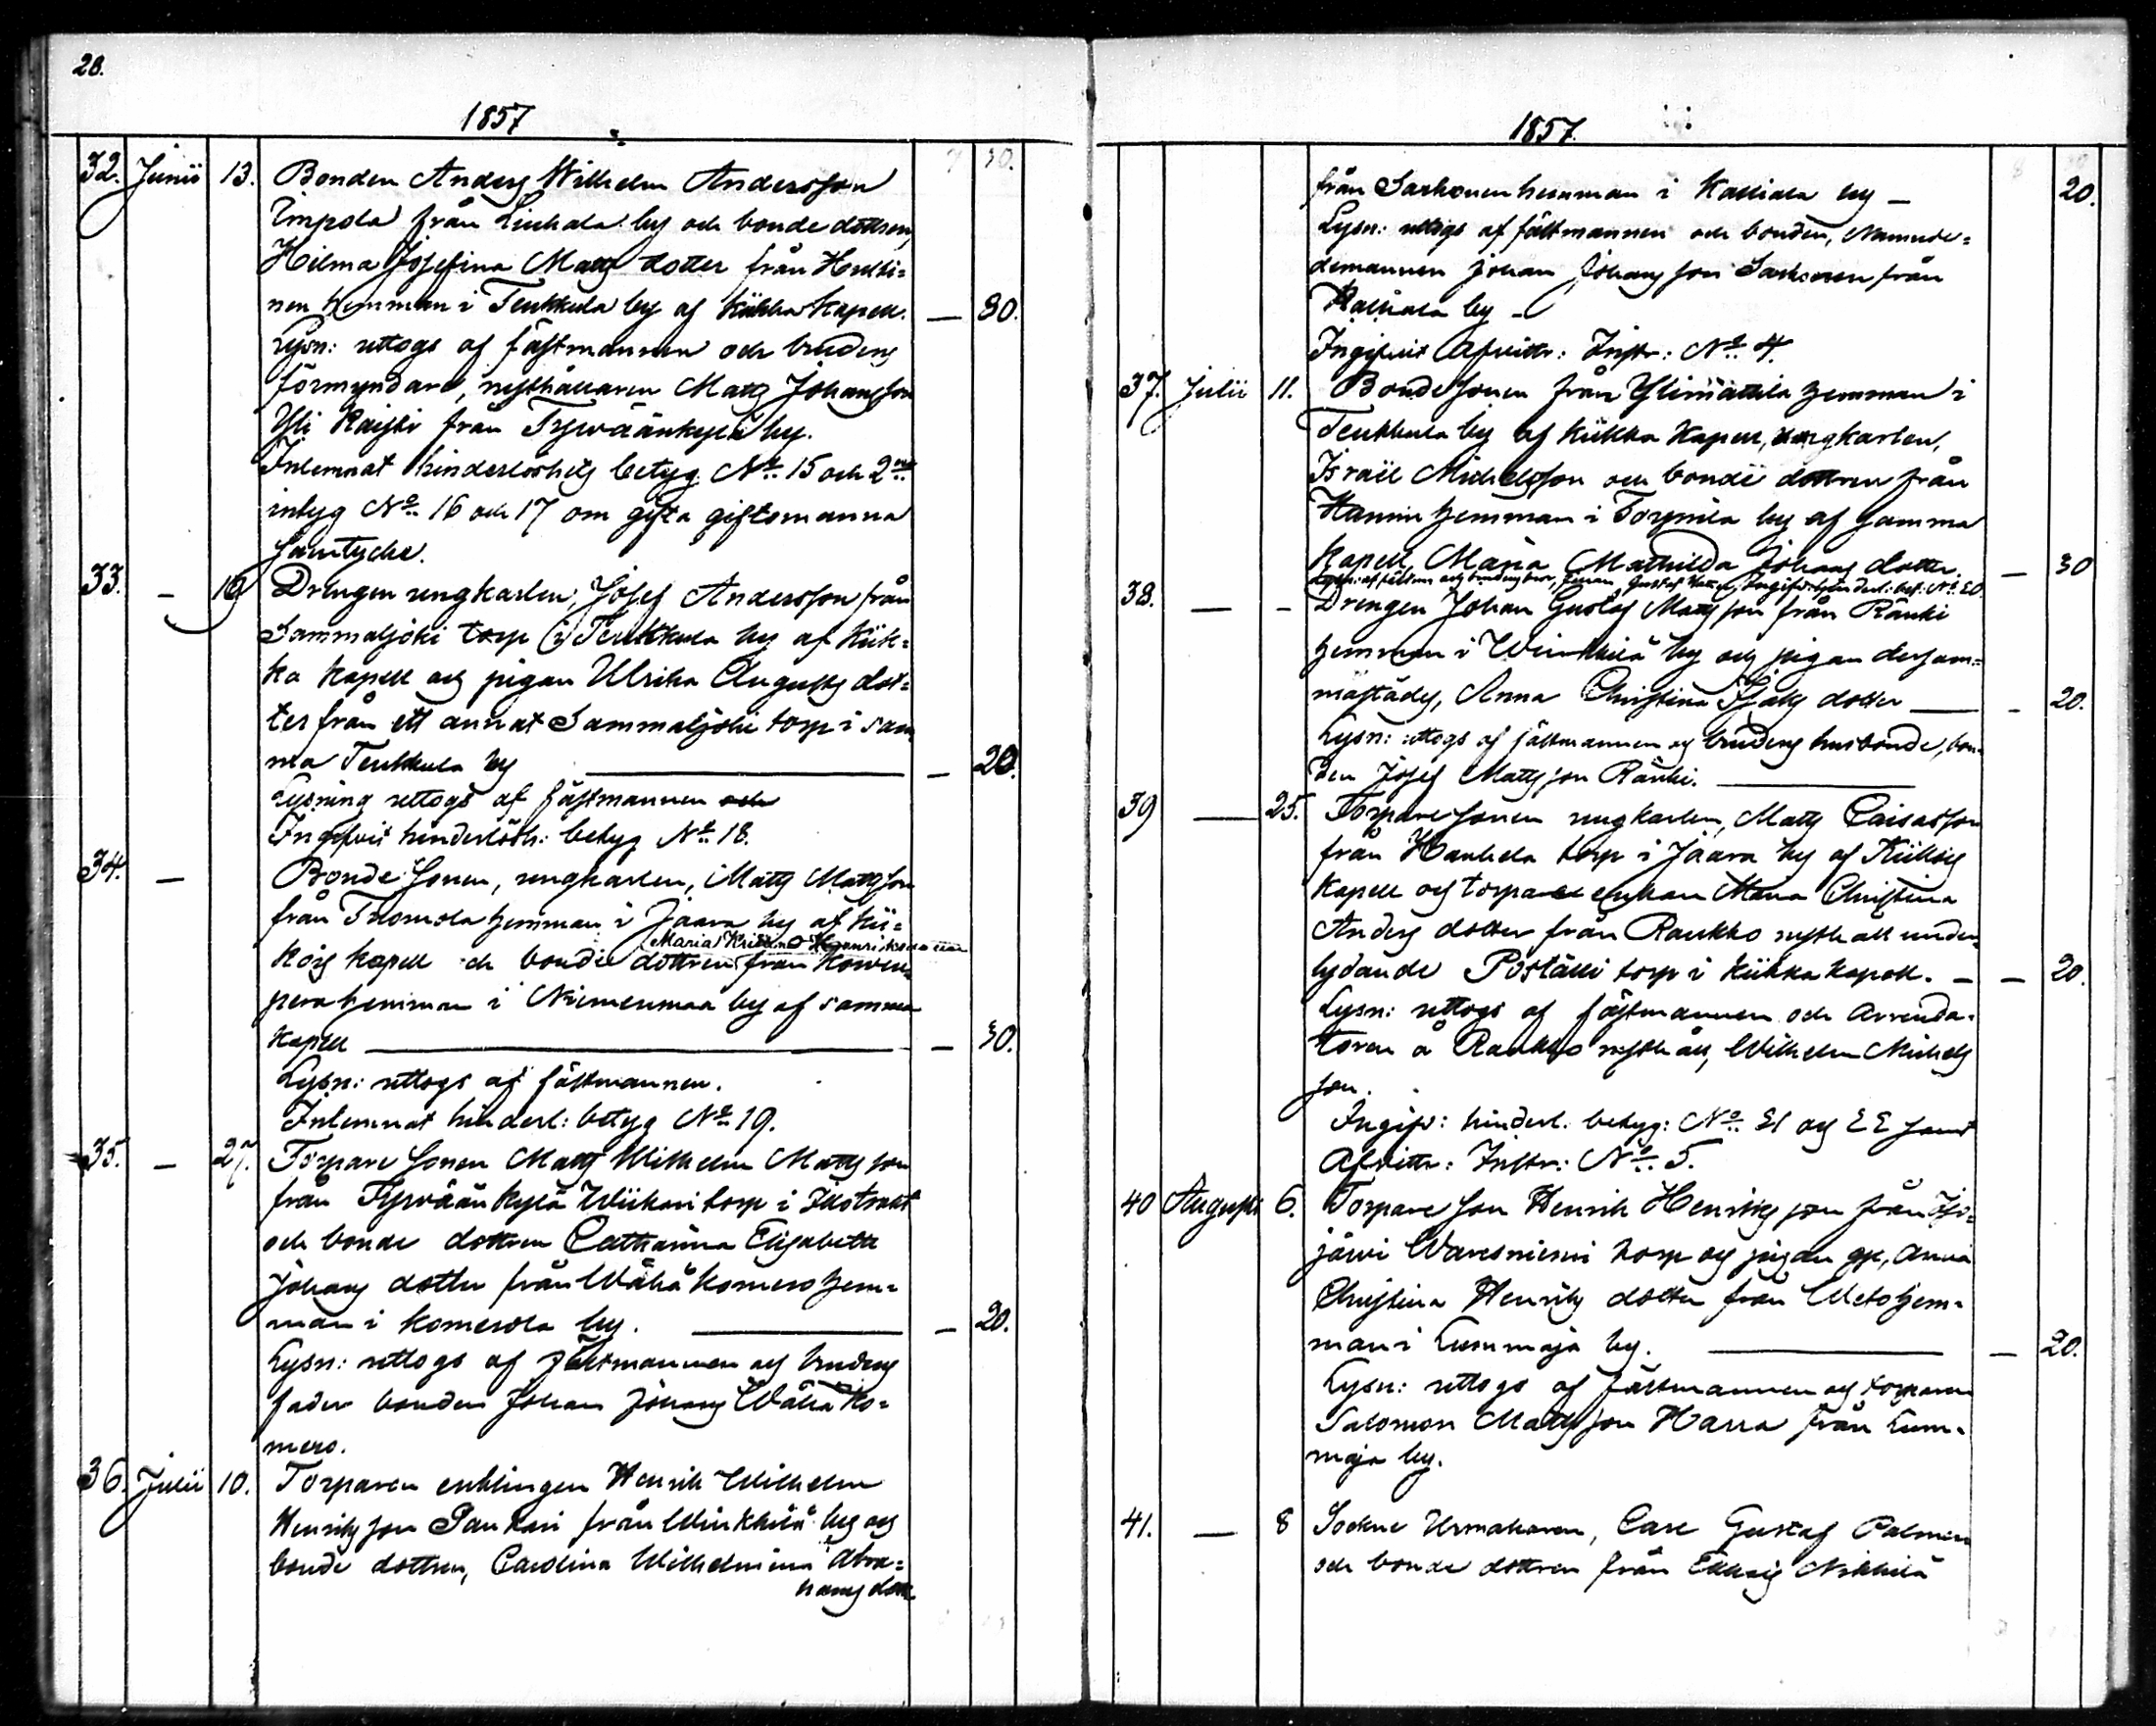 28.
1857
32. Junii 13. Bonden Anders Wilhelm Andersson
Timpola från Liuhala by och bonde dottren,
Hilma Josefina Matts dotter från Hulsi=
nen hemman i Teukkula by af Kiikka Kapell. — 30.
Lysn: uttogs af fästmannen och brudens
förmyndare, rusthållaren Matts Johansson
Yli Kaisti från Tyrväänkylä by.
Inlemnat hinderlöshets betyg No 15 och 2ne
intyg No 16 och 17 om gifta giftomanna
samtycke.
33. — 19 Drengen ungkarlen, Josef Andersson från
Sammaljoki torp i Teukkula by af Kiik=
ka Kapell och pigan Ulrika Augusts dot=
ter från ett annat Sammaljoki torp i sam
ma Teukkula by — 20.
Lysning uttogs af fästmannen och
Ingifvit hinderlösh: betyg No 18.
34. — Bonde Sonen, ungkarlen, Matts Mattsson
från Tuomola hemman i Jaara by af Kii=
Maria Kristina Henriksdotter
kois kapell och bonde dottren från Kowen=
pera hemman i Niemenmaa by af samma
Kapell — 30.
Lysn: uttogs af fästmannen.
Inlemnat hinderl: betyg No 19.
35. — 27. Torpare Sonen Matts Wilhelm Mattsson
från Tyrväänkylä Wiikari torp i
och bonde dottren Catharina Elisabeth
Johans dotter från Wähä Komero hem=
man i Komerola by. — 20.
Lysn: uttogs af fästmannen och brudens
fader bonden Johan Johansson Wähä Ko=
mero.
36. Julii 10. Torparen enklingen Henrik Wilhelm
Henriksson Pankari från Winkkilä by och
bonde dottren, Carolina Wilhelmina Abra=
hams dott
1857.
från Sarkonen hemman i Kalliala by — 20.
Lysn: uttogs af fästmannen och bonden, Nämnde=
demannen Johan Johansson Sarkonen från
Kalliala by —
Ingifvit Afvittr: Instr: No 4.
37. Julii 11. Bonde Sonen från Ylimattila hemman i
Teukkula by af Kiikka Kapell, ungkarlen,
Israël Michelsson och bonde dottren från
Hannu hemman i Torpnila by af samma
Kapell, Maria Mathilda Johans dotter. — 30
Lysn: af fästm och brudens bror, Gustaf Ingifv: hinderl: bet: No 20.
38. — - Drengen Johan Gustaf Mattsson från Ränki
hemman i Winkkilä by och pigan dersam=
mastädes, Anna Christina Isaks dotter — 20.
Lysn: uttogs af fästmannen och brudens husbonde, bon=
den Josef Mattsson Ränki.
39 — 25. Torpare Sonen ungkarlen, Matts Caisasson
från Hanhela torp i Jaara by af Kiikois
Kapell och torpare enkan Maria Christina
Anders dotter från Raukko rusthåll under=
lydande Poställi torp i Kiikka kapell. — — 20.
Lysn: uttogs af fästmannen och Arrenda=
toren å Raukko rusthåll, Wilhelm Michels
son.
Ingifv: hinderl. betyg: No 21 och 22 samt
Afvittr: Instr: No 5.
40 Augusti 6. Torpare Son Henrik Henriksson från Iso=
järvi Waresniemi torp och pigan gp, Anna
Christina Henriks dotter från Uletohem=
man i Lummaja by. — 20.
Lysn: uttogs af fästmannen och torparen
Salomon Mattsson Harra från Lum=
maja by.
41. — 8 Sockne Urmakaren, Carl Gustaf Palmen
och bonde dottren från Ekkois Nikkilä